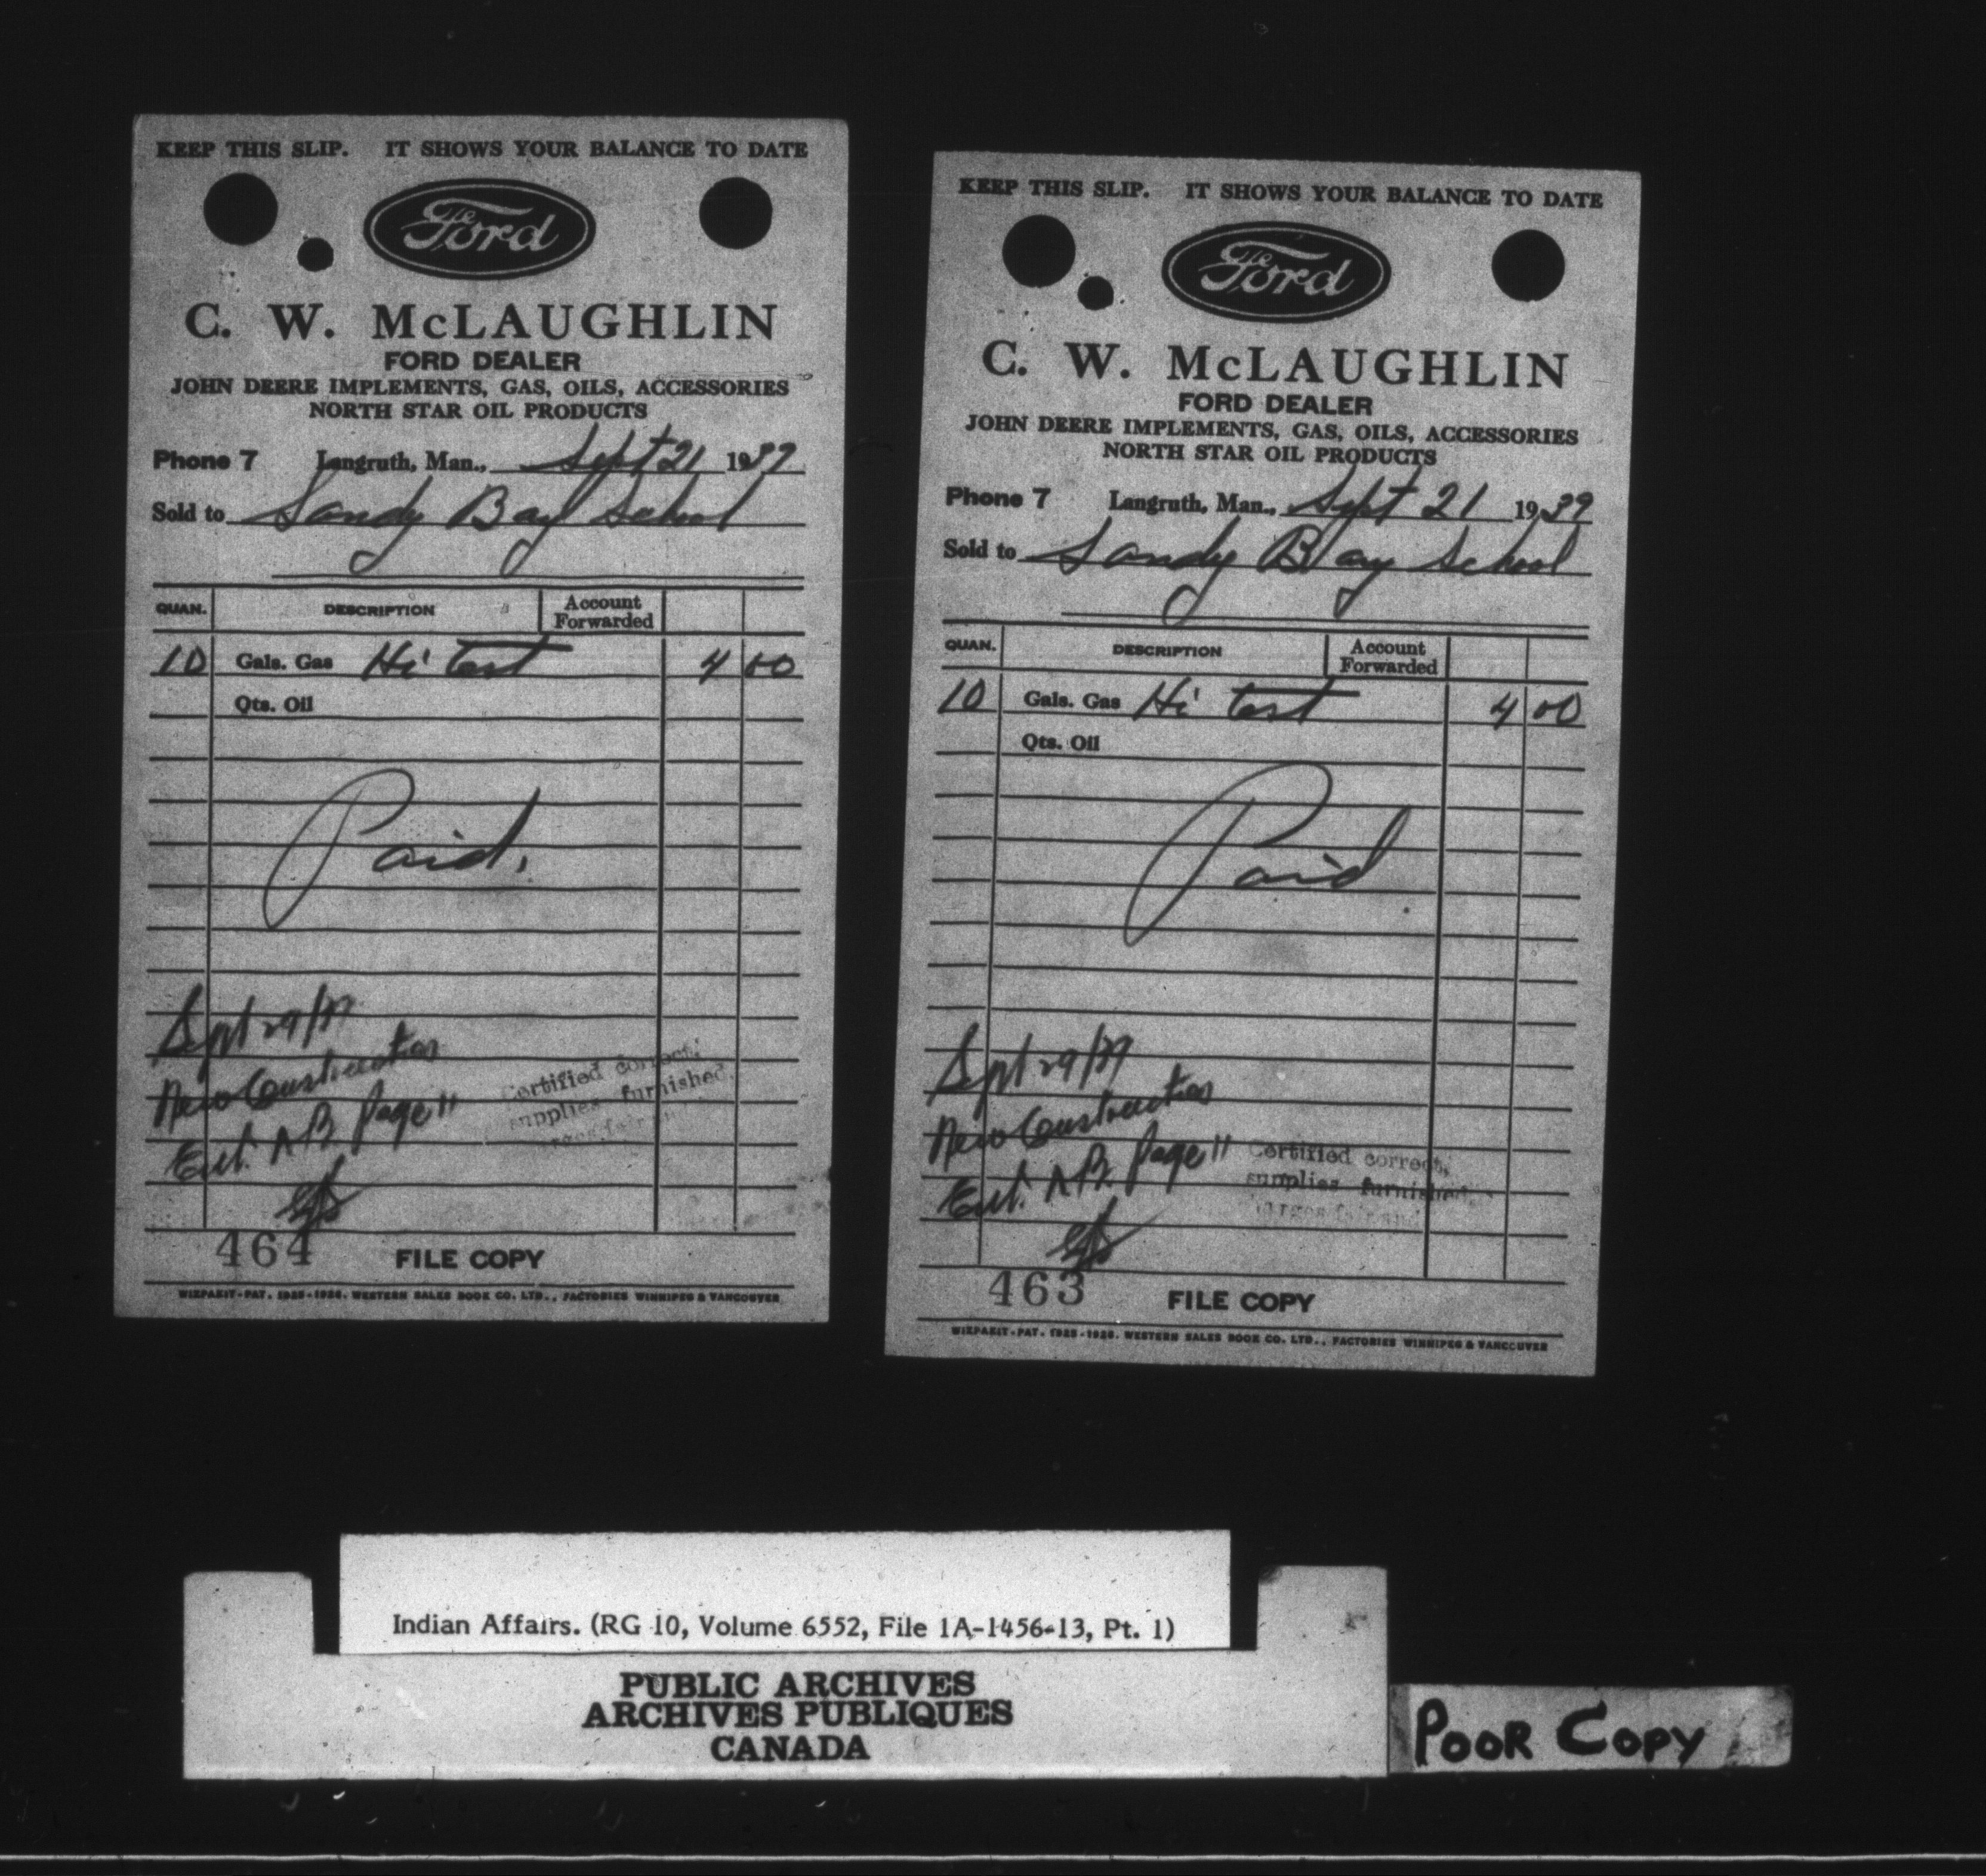 KEEP THIS SLIP. IT SHOWS YOUR BALANCE TO DATE
The Ford
C. W. McLAUGHLIN
FORD DEALER
JOHN DEERE IMPLEMENTS, GAS, OILS, ACCESSORIES
NORTH STAR OIL PRODUCTS
Phone 7 Langruth, Man., Sept 21 1939
Sold to Sandy Bay School
QUAN. DESCRIPTION Account Forwarded
10 Gals. Gas Hi test 4 00
Qts. Oil
Paid.
Sept 29/39
New Construction
Ent. A.B. Page 11
Certified correct,
supplies furnished,
464 FILE COPY
WIZPAKIT-PAT. 1925-1926. WESTERN SALES BOOK CO. LTD., FACTORIES WINNIPEG & VANCOUVER
KEEP THIS SLIP. IT SHOWS YOUR BALANCE TO DATE
The Ford
C. W. McLAUGHLIN
FORD DEALER
JOHN DEERE IMPLEMENTS, GAS, OILS, ACCESSORIES
NORTH STAR OIL PRODUCTS
Phone 7 Langruth, Man., Sept 21 1939
Sold to Sandy Bay School
QUAN. DESCRIPTION Account Forwarded
10 Gals. Gas Hi test 4 00
Qts. Oil
Paid
Sept 29/39
New Construction
Ent. A.B. Page 11
Certified correct,
supplies furnished,
charges fair and
463 FILE COPY
WIZPAKIT-PAT. 1925-1926. WESTERN SALES BOOK CO. LTD., FACTORIES WINNIPEG & VANCOUVER
Indian Affairs. (RG 10, Volume 6552, File 1A-1456-13, Pt. 1)
PUBLIC ARCHIVES
ARCHIVES PUBLIQUES
CANADA
POOR COPY